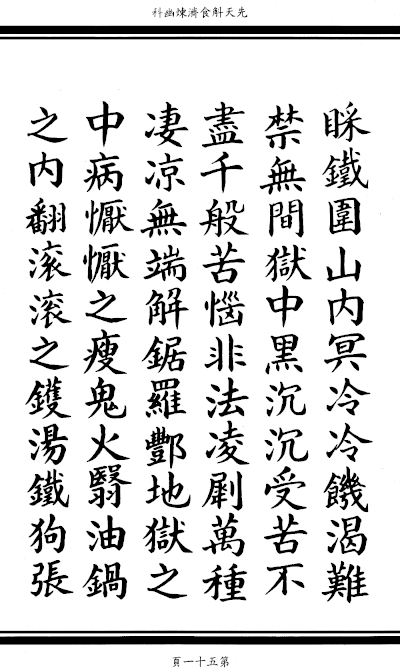 先天斛食濟煉幽科
睬鐵圍山内冥冷冷饑渴難
禁無間獄中黑沉沉受苦不
盡千般苦惱非法凌萬種
凄凉無端解鋸羅酆地獄之
中病懨懨之瘦鬼火翳油鍋
之内翻滚滚之鑊湯鐵狗張
第五十一頁